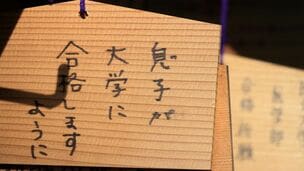 息子が
大学に
合格します
ように